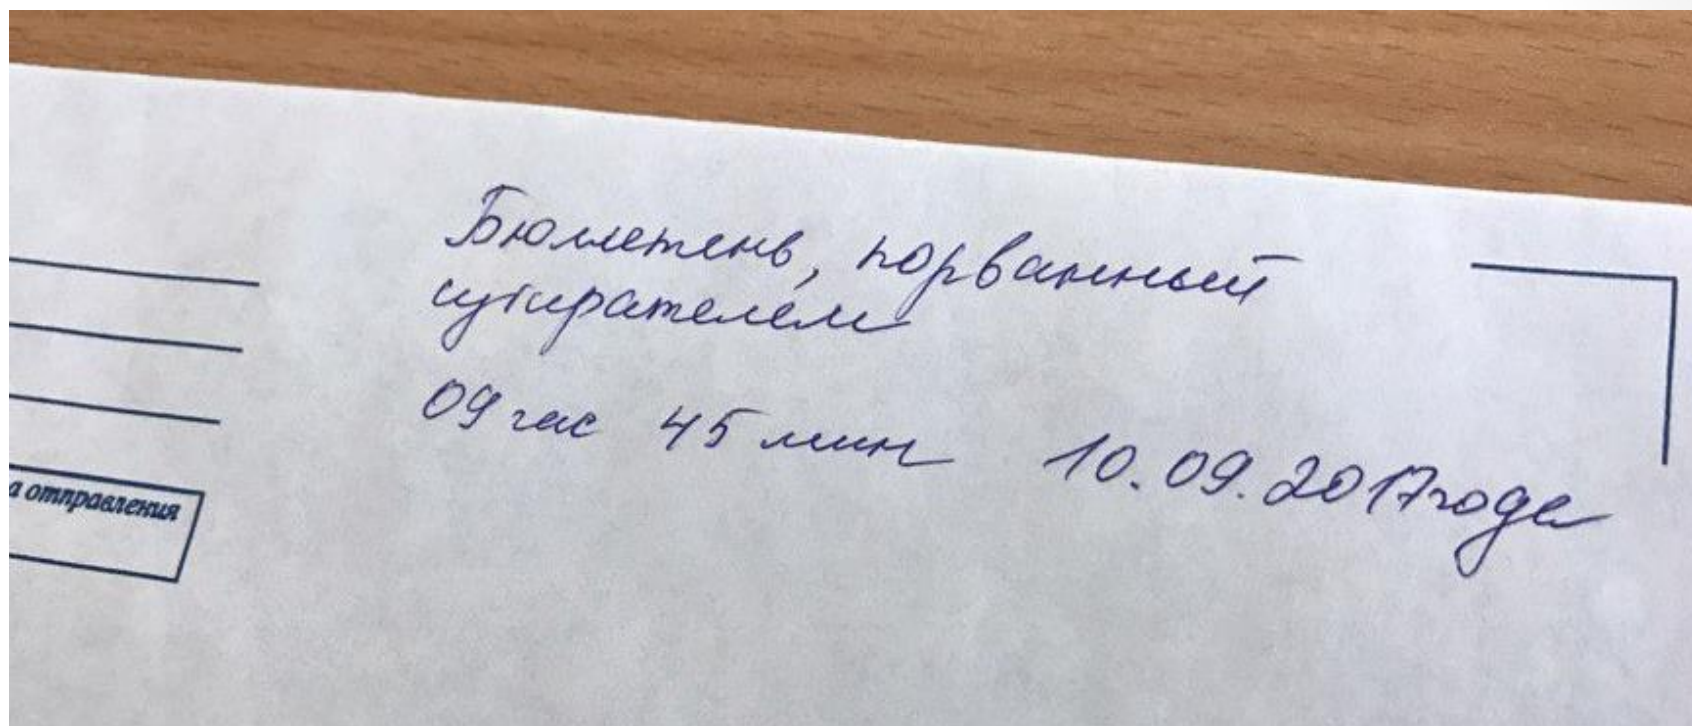 Бюллетень, порванный
избирателем
09 час 45 мин 10.09.2017 года
а отправления